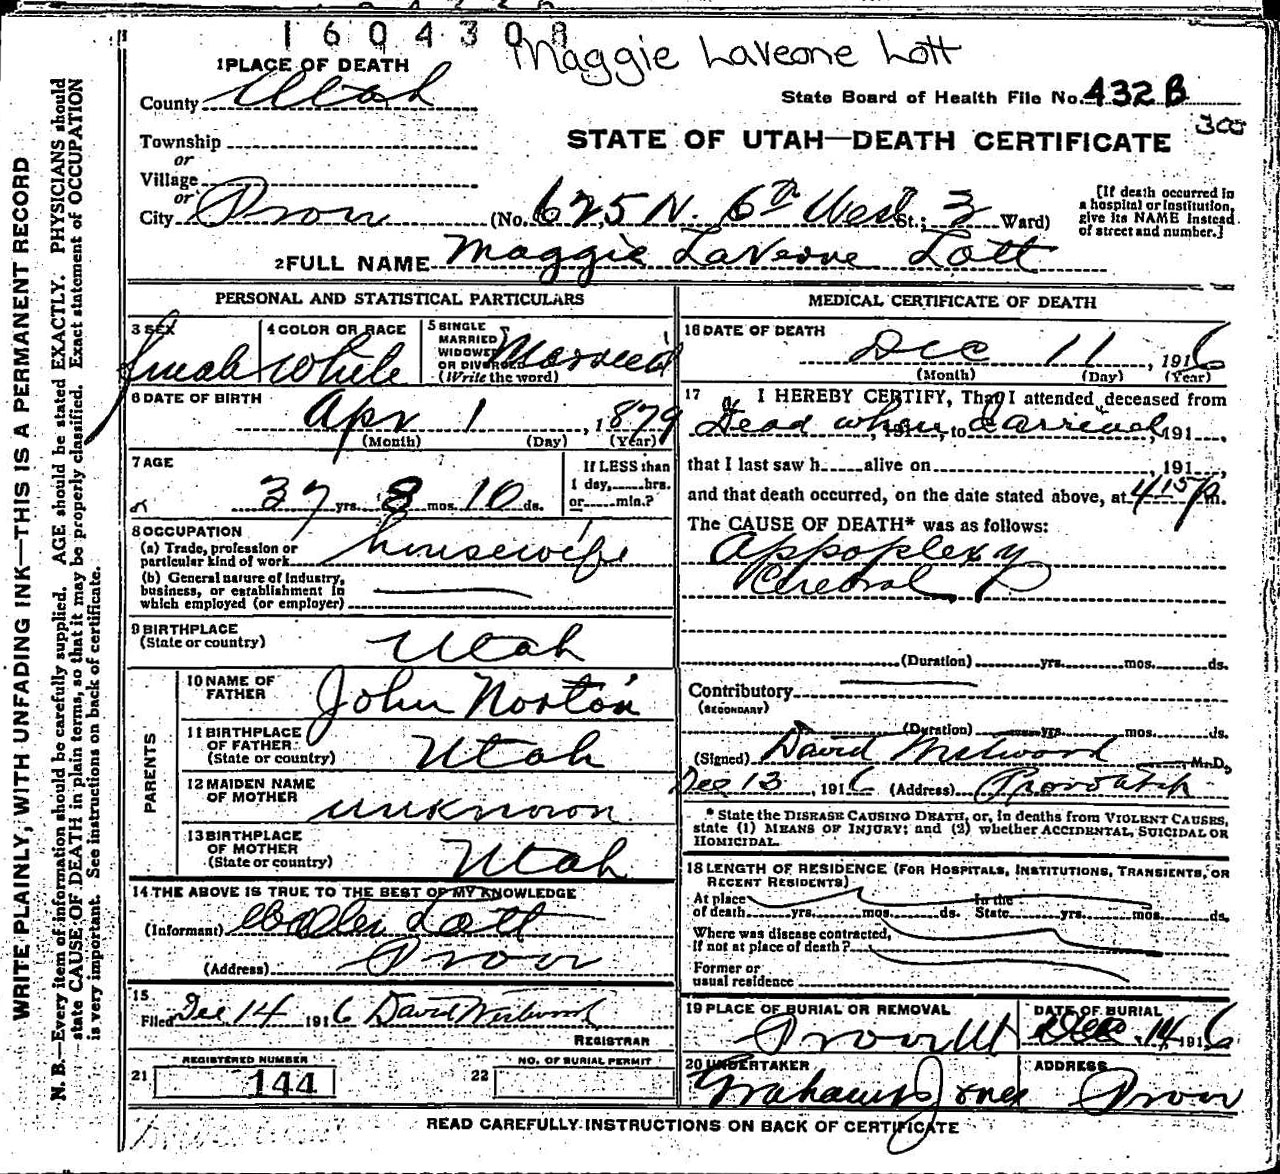 1604308
Maggie LaVeone Lott
1 PLACE OF DEATH
County Utah
State Board of Health File No. 432 B
300
Township
or
Village
or
City Provo (No. 625 N. 6th West St.; 3 Ward)
STATE OF UTAH—DEATH CERTIFICATE
[If death occurred in
a hospital or institution,
give its NAME instead
of street and number.]
2 FULL NAME Maggie LaVeone Lott
PERSONAL AND STATISTICAL PARTICULARS
3 SEX
Female
4 COLOR OR RACE
White
5 SINGLE
MARRIED
WIDOWED
OR DIVORCED
(Write the word)
Married
6 DATE OF BIRTH
Apr 1, 1879
(Month) (Day) (Year)
7 AGE
37 yrs. 8 mos. 10 ds.
If LESS than
1 day, hrs.
or min.?
8 OCCUPATION
(a) Trade, profession or
particular kind of work housewife
(b) General nature of industry,
business, or establishment in
which employed (or employer)
9 BIRTHPLACE
(State or country) Utah
PARENTS
10 NAME OF
FATHER John Norton
11 BIRTHPLACE
OF FATHER
(State or country) Utah
12 MAIDEN NAME
OF MOTHER unknown
13 BIRTHPLACE
OF MOTHER
(State or country) Utah
14 THE ABOVE IS TRUE TO THE BEST OF MY KNOWLEDGE
(Informant) Lott
(Address) Provo
15
Filed Dec 14 1916 David Westwood
REGISTRAR
REGISTERED NUMBER
21 144
NO. OF BURIAL PERMIT
22
MEDICAL CERTIFICATE OF DEATH
16 DATE OF DEATH
Dec 11, 1916
(Month) (Day) (Year)
17 I HEREBY CERTIFY, That I attended deceased from
Dead when I arrived, 191, to, 191,
that I last saw h alive on, 191,
and that death occurred, on the date stated above, at 4 15 p m.
The CAUSE OF DEATH* was as follows:
Appoplexy
Cerebral
(Duration) yrs. mos. ds.
Contributory
(SECONDARY)
(Duration) yrs. mos. ds.
(Signed) David Westwood M.D.
Dec 13, 1916 (Address) Provo Utah
* State the DISEASE CAUSING DEATH, or, in deaths from VIOLENT CAUSES,
state (1) MEANS OF INJURY; and (2) whether ACCIDENTAL, SUICIDAL OR
HOMICIDAL.
18 LENGTH OF RESIDENCE (FOR HOSPITALS, INSTITUTIONS, TRANSIENTS, OR
RECENT RESIDENTS)
At place In the
of death yrs. mos. ds. State yrs. mos. ds.
Where was disease contracted,
if not at place of death?
Former or
usual residence
19 PLACE OF BURIAL OR REMOVAL
Provo Ut
DATE OF BURIAL
Dec 14 1916
20 UNDERTAKER
Graham Jones
ADDRESS
Provo
READ CAREFULLY INSTRUCTIONS ON BACK OF CERTIFICATE
WRITE PLAINLY, WITH UNFADING INK—THIS IS A PERMANENT RECORD
N. B.—Every item of information should be carefully supplied. AGE should be stated EXACTLY. PHYSICIANS should
state CAUSE OF DEATH in plain terms, so that it may be properly classified. Exact statement of OCCUPATION
is very important. See instructions on back of certificate.